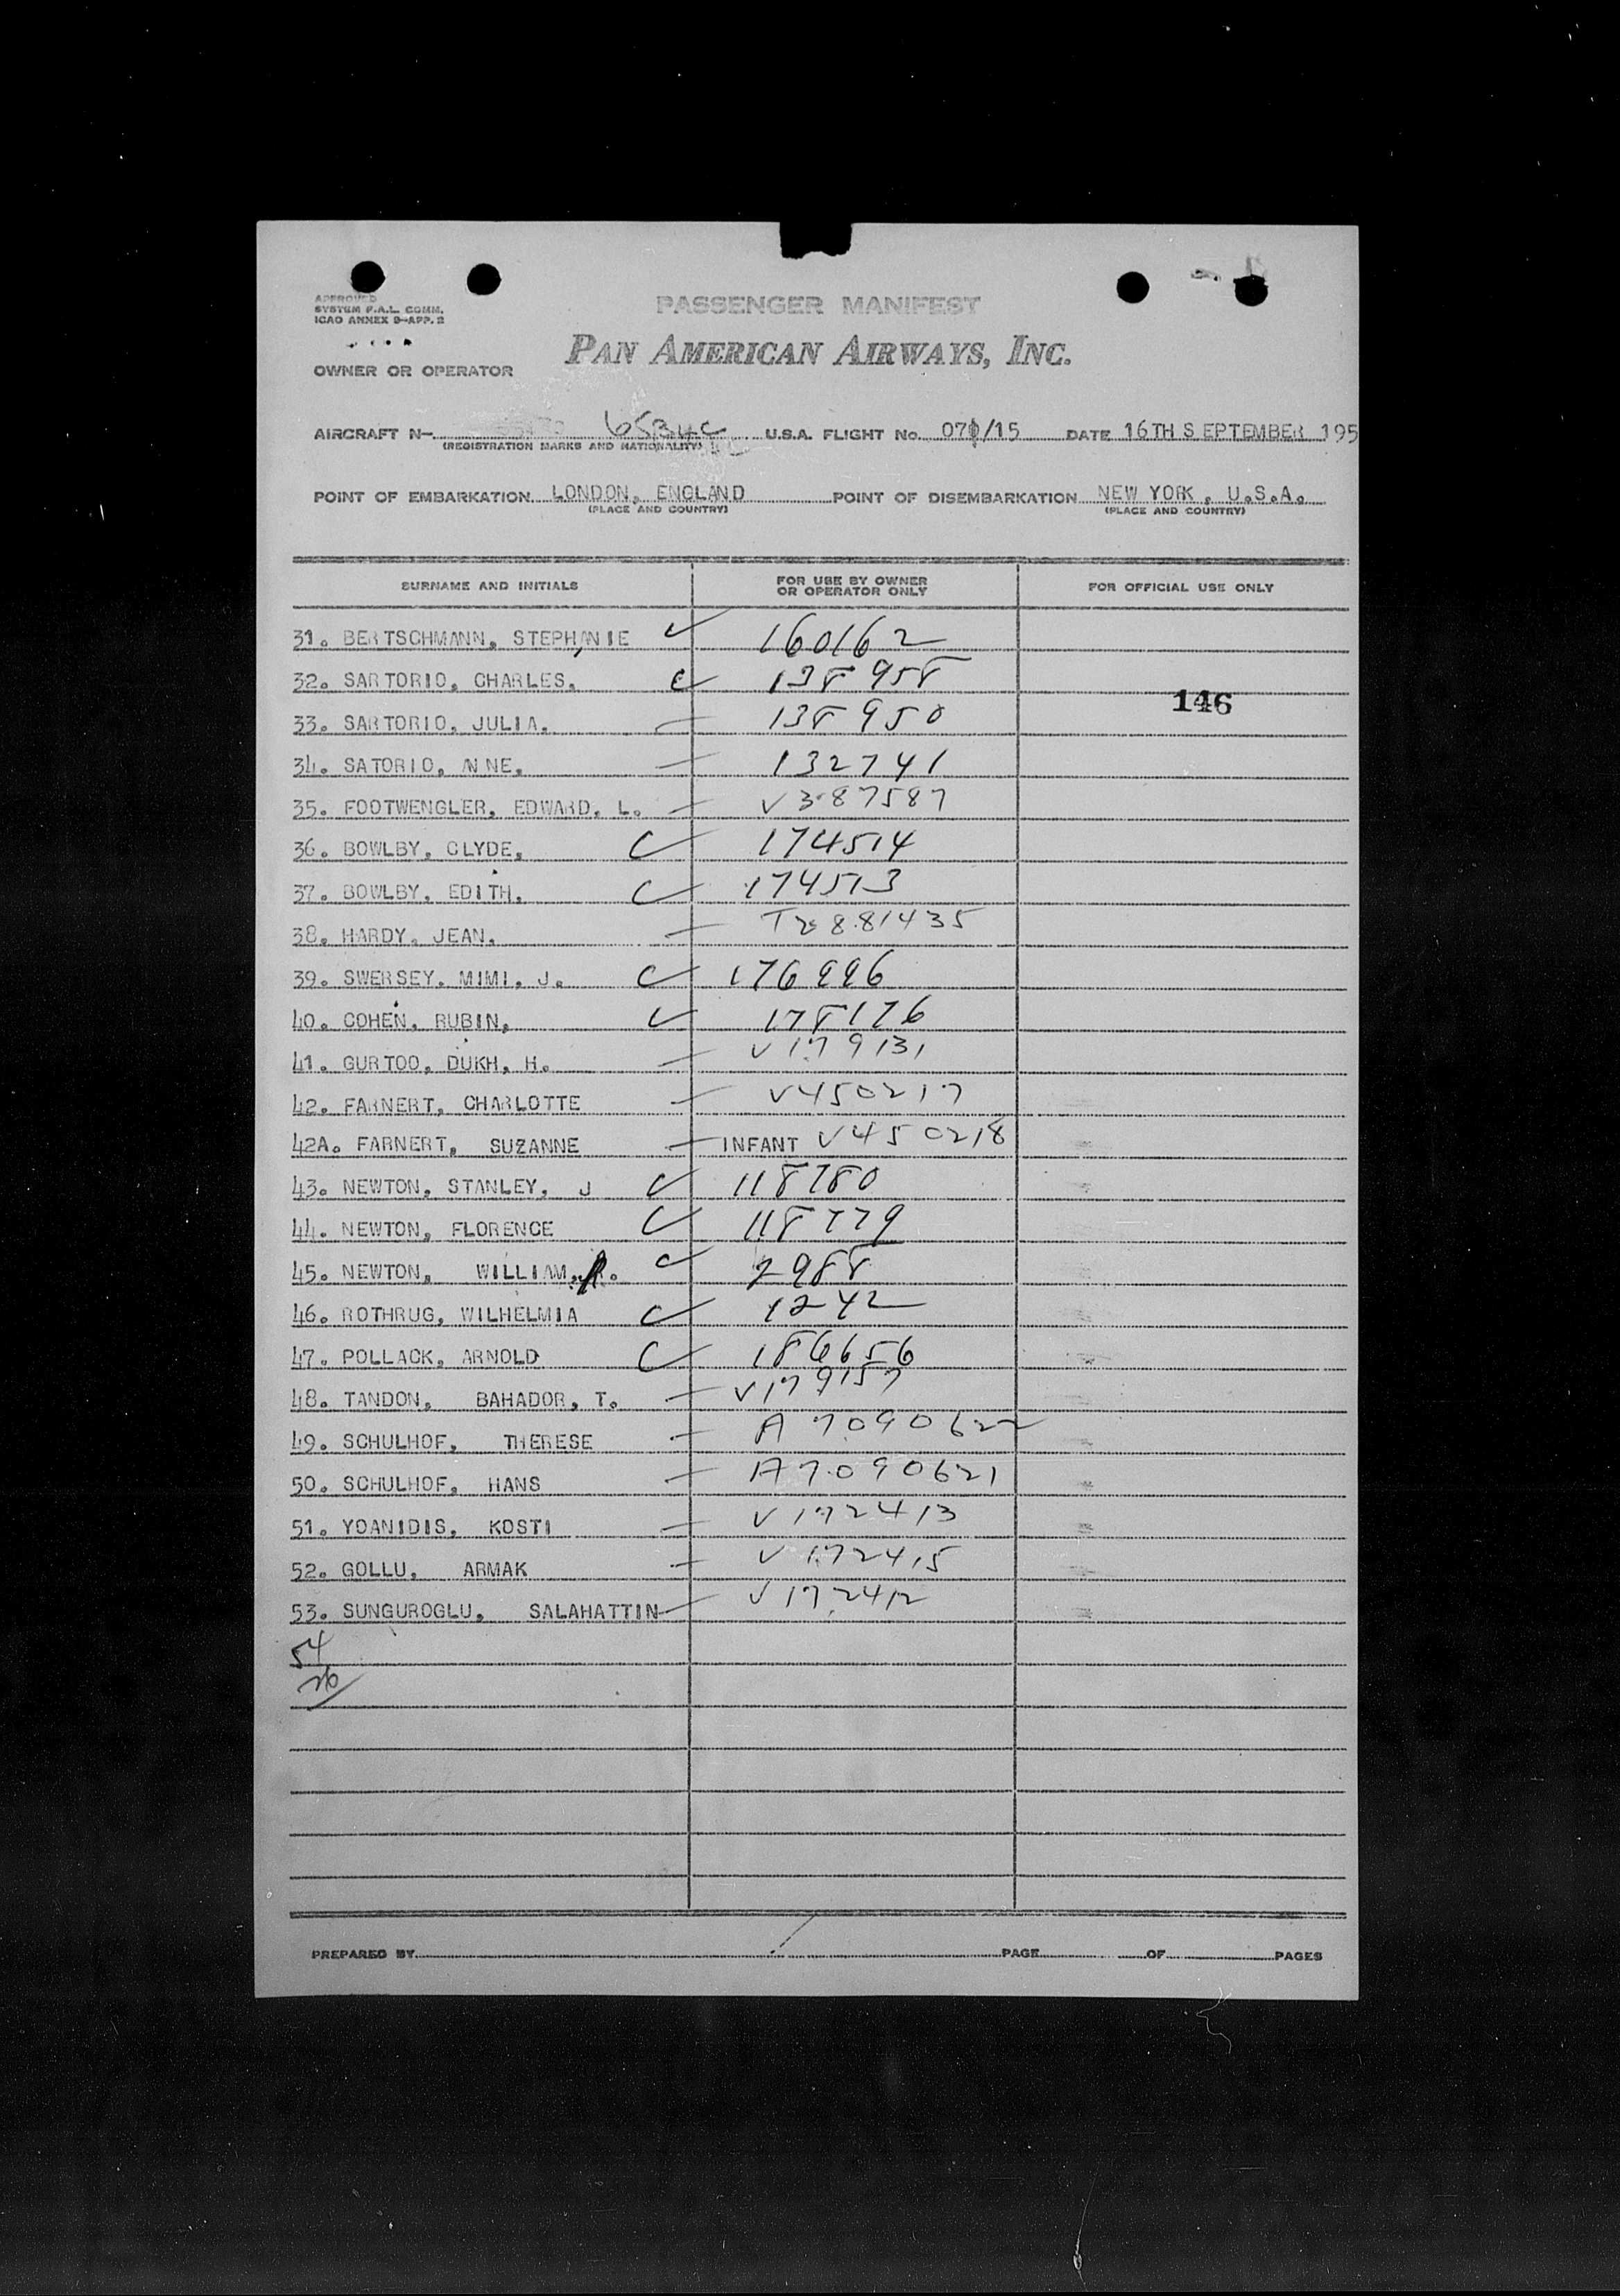 APPROVED
SYSTEM F.A.L. COMM.
ICAO ANNEX 9-APP. 2
PASSENGER MANIFEST
PAN AMERICAN AIRWAYS, INC.
OWNER OR OPERATOR
AIRCRAFT N- U.S.A. FLIGHT No. 071/15 DATE 16TH SEPTEMBER 195
(REGISTRATION MARKS AND NATIONALITY)
POINT OF EMBARKATION LONDON, ENGLAND POINT OF DISEMBARKATION NEW YORK, U.S.A.
(PLACE AND COUNTRY) (PLACE AND COUNTRY)
SURNAME AND INITIALS FOR USE BY OWNER OR OPERATOR ONLY FOR OFFICIAL USE ONLY
31. BERTSCHMANN, STEPHANIE 160162
32. SARTORIO, CHARLES. 138958
146
33. SARTORIO, JULIA. 138950
34. SATORIO, ANNE. 132741
35. FOOTWENGLER, EDWARD, L. V387587
36. BOWLBY, CLYDE. 174514
37. BOWLBY, EDITH. 174513
38. HARDY, JEAN. T2881435
39. SWERSEY, MIMI, J. 176996
40. COHEN, RUBIN. 178176
41. GURTOO, DUKH, H. V179131
42. FARNERT, CHARLOTTE V450217
42A. FARNERT, SUZANNE INFANT V450218
43. NEWTON, STANLEY, J 118780
44. NEWTON, FLORENCE 118779
45. NEWTON, WILLIAM. R. 2988
46. ROTHRUG, WILHELMIA 1242
47. POLLACK, ARNOLD 186656
48. TANDON, BAHADOR, T. V179157
49. SCHULHOF, THERESE A7090622
50. SCHULHOF, HANS A7090621
51. YOANIDIS, KOSTI V172413
52. GOLLU, ARMAK V172415
53. SUNGUROGLU, SALAHATTIN V172412
54
PREPARED BY PAGE OF PAGES